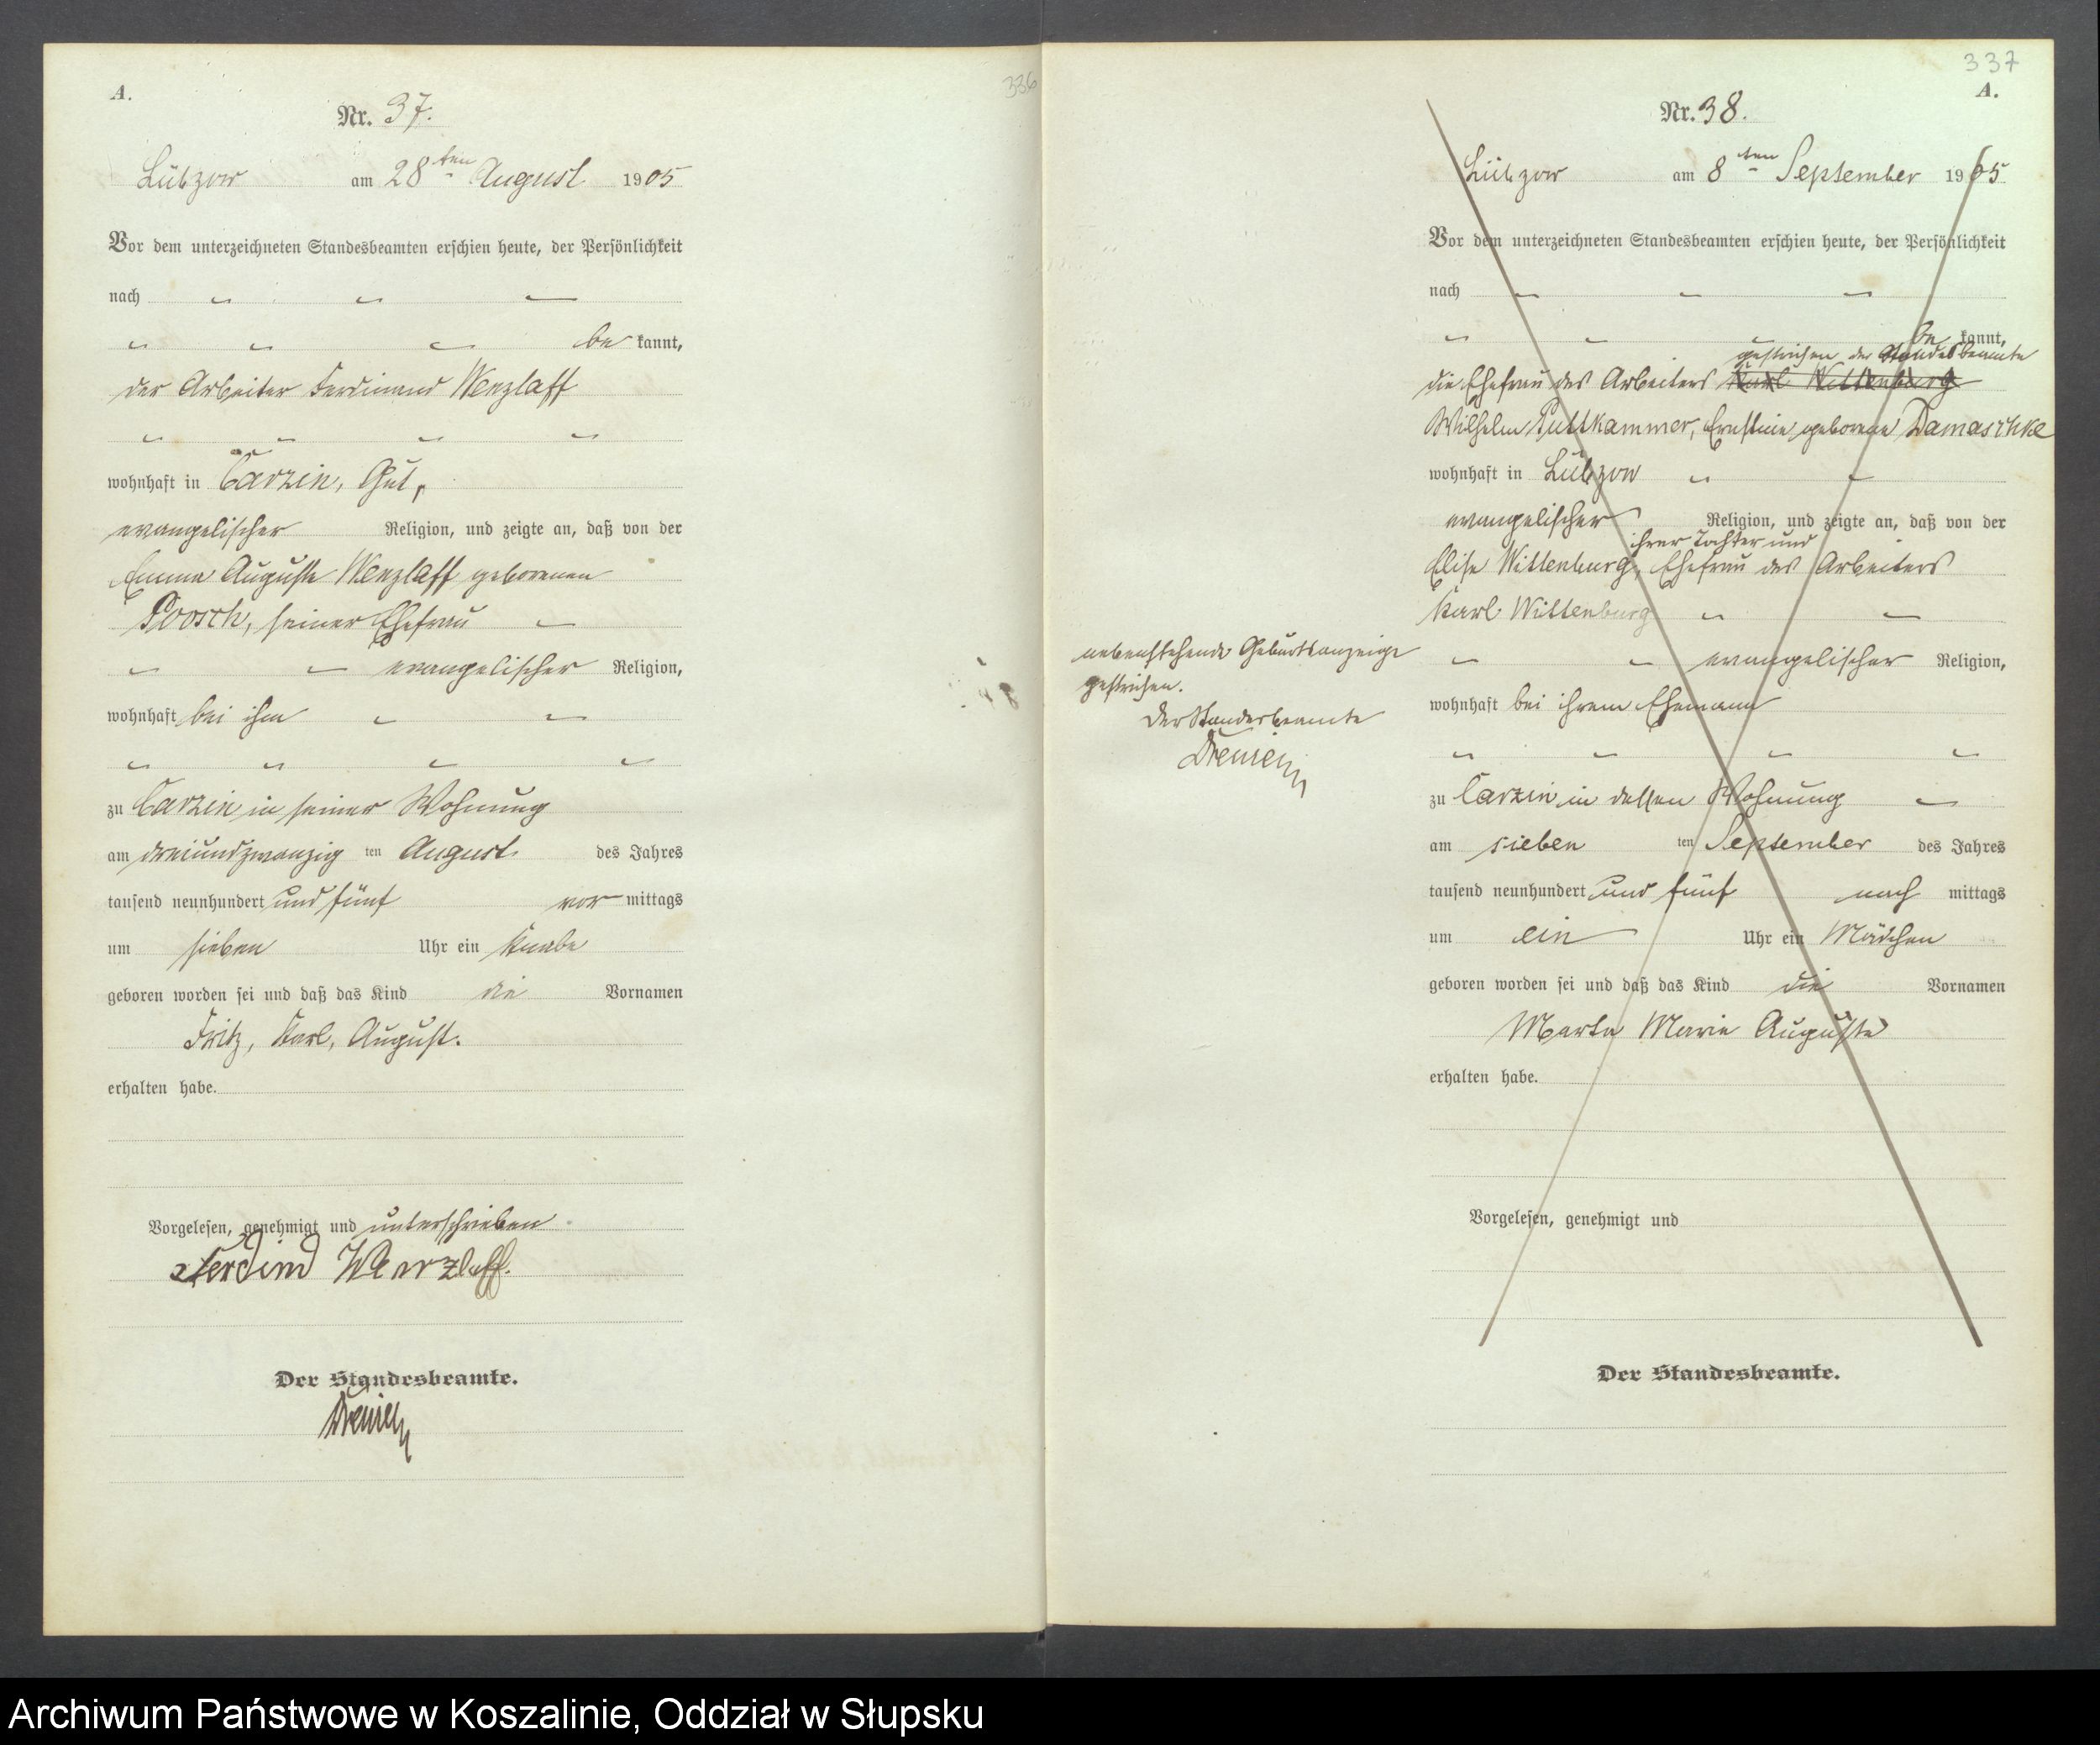 336
A.
Nr. 37.
Lübzow am 28ten August 1905
Vor dem unterzeichneten Standesbeamten erschien heute, der Persönlichkeit
nach
be kannt,
der Arbeiter Ferdinand Wenzlaff
wohnhaft in Carzin, Gut,
evangelischer Religion, und zeigte an, daß von der
Emma Auguste Wenzlaff geborenen
Poosch, seiner Ehefrau
evangelischer Religion,
wohnhaft bei ihm
zu Carzin in seiner Wohnung
am dreiundzwanzig ten August des Jahres
tausend neunhundert und fünf vor mittags
um sieben Uhr ein Knabe
geboren worden sei und daß das Kind die Vornamen
Fritz, Karl, August.
erhalten habe.
Vorgelesen, genehmigt und unterschrieben
Ferdind Wenzlaff.
Der Standesbeamte.
337
A.
Nr. 38.
Lübzow am 8ten September 1905
Vor dem unterzeichneten Standesbeamten erschien heute, der Persönlichkeit
nach
be kannt,
gestrichen der Standesbeamte
die Ehefrau des Arbeiters Karl Wittenburg
Wilhelm Puttkammer, Ernstine geborene Damaschke
wohnhaft in Lübzow
evangelischer Religion, und zeigte an, daß von der
ihrer Tochter und
Elise Wittenburg, Ehefrau des Arbeiters
Karl Wittenburg
evangelischer Religion,
wohnhaft bei ihrem Ehemann
zu Carzin in dessen Wohnung
am sieben ten September des Jahres
tausend neunhundert und fünf nach mittags
um ein Uhr ein Mädchen
geboren worden sei und daß das Kind die Vornamen
Marta Marie Auguste
erhalten habe.
Vorgelesen, genehmigt und
Der Standesbeamte.
nebenstehende Geburtsanzeige
gestrichen.
Der Standesbeamte
Archiwum Państwowe w Koszalinie, Oddział w Słupsku